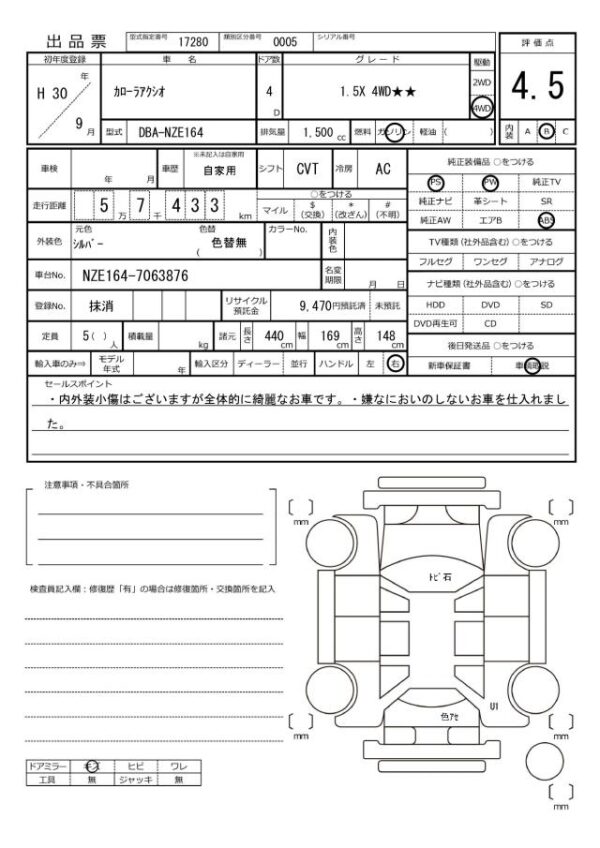 出品票 型式指定番号 17280 類別区分番号 0005 シリアル番号
評価点
4.5
初年度登録 車名 ドア数 グレード 駆動
H 30 年 9 月
カローラアクシオ 4 D 1.5X 4WD★★ 2WD 4WD
型式 DBA-NZE164 排気量 1,500 cc 燃料 ガソリン 軽油 ( ) 内装 A B C
車検 年 月 車歴 ※未記入は自家用 自家用 シフト CVT 冷房 AC
純正装備品 ○をつける
PS PW 純正TV
純正ナビ 革シート SR
純正AW エアB ABS
走行距離 5 万 7 千 4 3 3 km ○をつける
マイル $ (交換) * (改ざん) # (不明)
外装色 元色 シルバー 色替 色替無 ( ) カラーNo. 内装色
TV種類 (社外品含む) ○をつける
フルセグ ワンセグ アナログ
車台No. NZE164-7063876 名変期限 月 日
ナビ種類 (社外品含む) ○をつける
HDD DVD SD
DVD再生可 CD
登録No. 抹消 リサイクル預託金 9,470円預託済 未預託
定員 5 ( ) 人 積載量 kg 諸元 長さ 440 cm 幅 169 cm 高さ 148 cm
後日発送品 ○をつける
新車保証書 車輌取説
輸入車のみ⇒ モデル年式 年 輸入区分 ディーラー 並行 ハンドル 左 右
セールスポイント
・内外装小傷はございますが全体的に綺麗なお車です。・嫌なにおいのしないお車を仕入れまし
た。
注意事項・不具合箇所
検査員記入欄：修復歴「有」の場合は修復箇所・交換箇所を記入
[ ] mm
[ ] mm
ﾄﾋﾞ石
U1
色ｱｾ
[ ] mm
[ ] mm
[ ] mm
ドアミラー キズ ヒビ ワレ
工具 無 ジャッキ 無